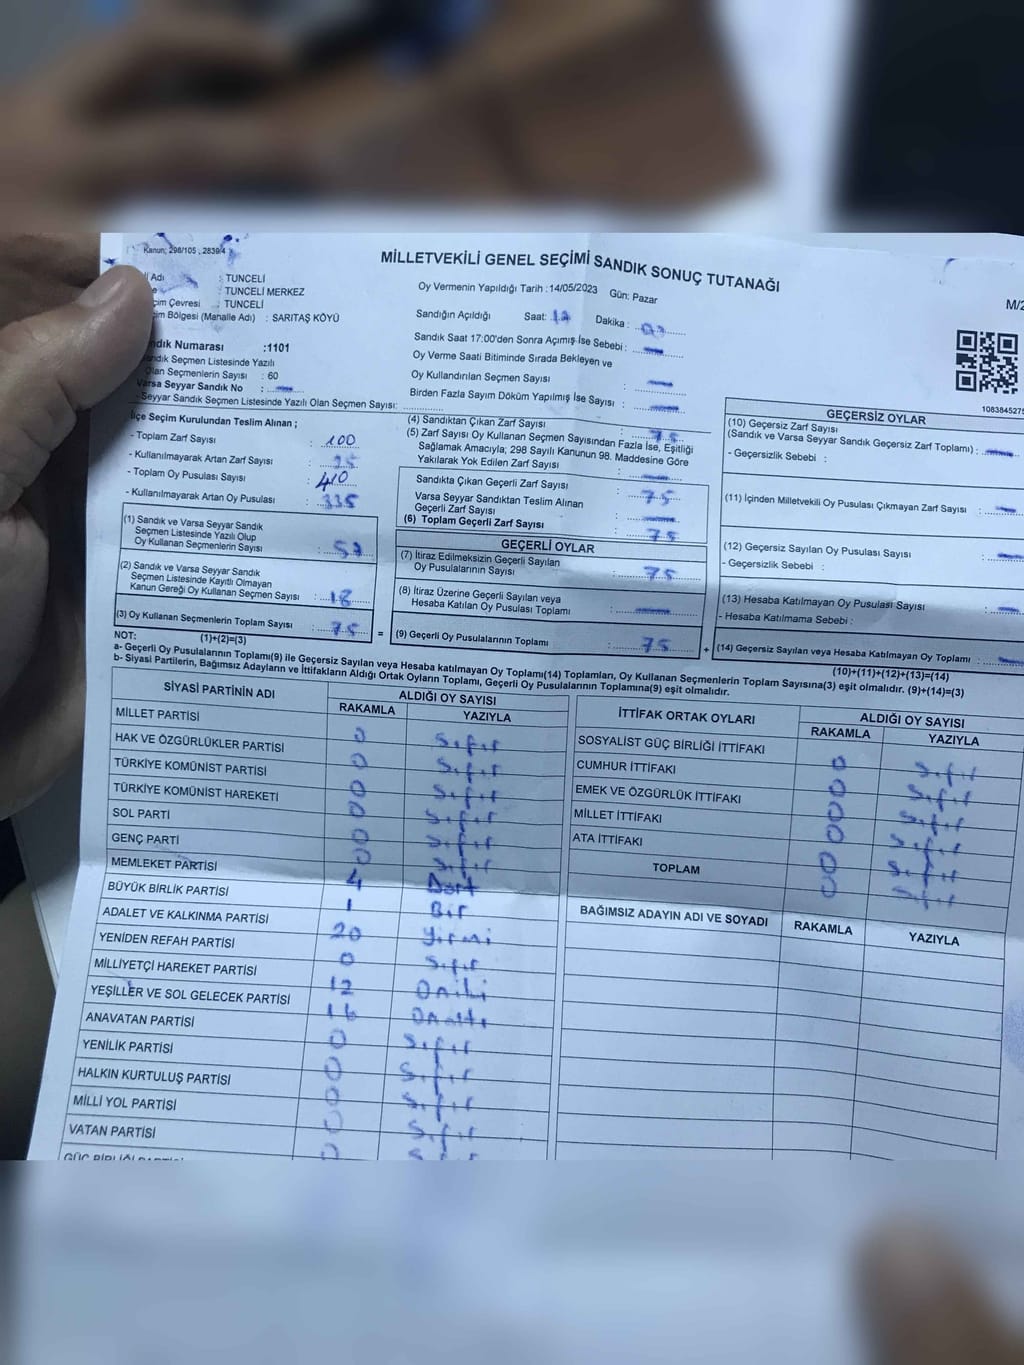 Kanun; 298/105 , 2839/4
MİLLETVEKİLİ GENEL SEÇİMİ SANDIK SONUÇ TUTANAĞI
M/2
Adı : TUNCELİ
: TUNCELİ MERKEZ
Çevresi : TUNCELİ
Bölgesi (Mahalle Adı) : SARITAŞ KÖYÜ
Sandık Numarası :1101
Sandık Seçmen Listesinde Yazılı
Olan Seçmenlerin Sayısı : 60
Varsa Seyyar Sandık No :
- Seyyar Sandık Seçmen Listesinde Yazılı Olan Seçmen Sayısı:
Oy Vermenin Yapıldığı Tarih :14/05/2023 Gün: Pazar
Sandığın Açıldığı Saat: Dakika :
Sandık Saat 17:00'den Sonra Açımış İse Sebebi :
Oy Verme Saati Bitiminde Sırada Bekleyen ve
Oy Kullandırılan Seçmen Sayısı :
Birden Fazla Sayım Döküm Yapılmış İse Sayısı :
1083845275
İlçe Seçim Kurulundan Teslim Alınan ;
- Toplam Zarf Sayısı : 100
- Kullanılmayarak Artan Zarf Sayısı : 25
- Toplam Oy Pusulası Sayısı : 410
- Kullanılmayarak Artan Oy Pusulası : 335
(1) Sandık ve Varsa Seyyar Sandık
Seçmen Listesinde Yazılı Olup
Oy Kullanan Seçmenlerin Sayısı : 57
(2) Sandık ve Varsa Seyyar Sandık
Seçmen Listesinde Kayıtlı Olmayan
Kanun Gereği Oy Kullanan Seçmen Sayısı : 18
(3) Oy Kullanan Seçmenlerin Toplam Sayısı : 75
(1)+(2)=(3)
(4) Sandıktan Çıkan Zarf Sayısı : 75
(5) Zarf Sayısı Oy Kullanan Seçmen Sayısından Fazla İse, Eşitliği
Sağlamak Amacıyla; 298 Sayılı Kanunun 98. Maddesine Göre
Yakılarak Yok Edilen Zarf Sayısı :
Sandıkta Çıkan Geçerli Zarf Sayısı : 75
Varsa Seyyar Sandıktan Teslim Alınan
Geçerli Zarf Sayısı :
(6) Toplam Geçerli Zarf Sayısı : 75
GEÇERLİ OYLAR
(7) İtiraz Edilmeksizin Geçerli Sayılan
Oy Pusulalarının Sayısı : 75
(8) İtiraz Üzerine Geçerli Sayılan veya
Hesaba Katılan Oy Pusulası Toplamı :
= (9) Geçerli Oy Pusulalarının Toplamı : 75
GEÇERSİZ OYLAR
(10) Geçersiz Zarf Sayısı
(Sandık ve Varsa Seyyar Sandık Geçersiz Zarf Toplamı) :
- Geçersizlik Sebebi :
(11) İçinden Milletvekili Oy Pusulası Çıkmayan Zarf Sayısı :
(12) Geçersiz Sayılan Oy Pusulası Sayısı :
- Geçersizlik Sebebi :
(13) Hesaba Katılmayan Oy Pusulası Sayısı :
- Hesaba Katılmama Sebebi :
+ (14) Geçersiz Sayılan veya Hesaba Katılmayan Oy Toplamı :
(10)+(11)+(12)+(13)=(14)
NOT:
a- Geçerli Oy Pusulalarının Toplamı(9) ile Geçersiz Sayılan veya Hesaba katılmayan Oy Toplamı(14) Toplamları, Oy Kullanan Seçmenlerin Toplam Sayısına(3) eşit olmalıdır. (9)+(14)=(3)
b- Siyasi Partilerin, Bağımsız Adayların ve İttifakların Aldığı Ortak Oyların Toplamı, Geçerli Oy Pusulalarının Toplamına(9) eşit olmalıdır.
SİYASİ PARTİNİN ADI ALDIĞI OY SAYISI
RAKAMLA YAZIYLA
MİLLET PARTİSİ 0 Sıfır
HAK VE ÖZGÜRLÜKLER PARTİSİ 0 Sıfır
TÜRKİYE KOMÜNİST PARTİSİ 0 Sıfır
TÜRKİYE KOMÜNİST HAREKETİ 0 Sıfır
SOL PARTİ 0 Sıfır
GENÇ PARTİ 0 Sıfır
MEMLEKET PARTİSİ 4 Dört
BÜYÜK BİRLİK PARTİSİ 1 Bir
ADALET VE KALKINMA PARTİSİ 20 Yirmi
YENİDEN REFAH PARTİSİ 0 Sıfır
MİLLİYETÇİ HAREKET PARTİSİ 12 Oniki
YEŞİLLER VE SOL GELECEK PARTİSİ 16 Onaltı
ANAVATAN PARTİSİ 0 Sıfır
YENİLİK PARTİSİ 0 Sıfır
HALKIN KURTULUŞ PARTİSİ 0 Sıfır
MİLLİ YOL PARTİSİ 0 Sıfır
VATAN PARTİSİ 0
GÜÇ BİRLİĞİ
İTTİFAK ORTAK OYLARI ALDIĞI OY SAYISI
RAKAMLA YAZIYLA
SOSYALİST GÜÇ BİRLİĞİ İTTİFAKI 0 Sıfır
CUMHUR İTTİFAKI 0 Sıfır
EMEK VE ÖZGÜRLÜK İTTİFAKI 0 Sıfır
MİLLET İTTİFAKI 0 Sıfır
ATA İTTİFAKI 0 Sıfır
TOPLAM 0 Sıfır
BAĞIMSIZ ADAYIN ADI VE SOYADI RAKAMLA YAZIYLA